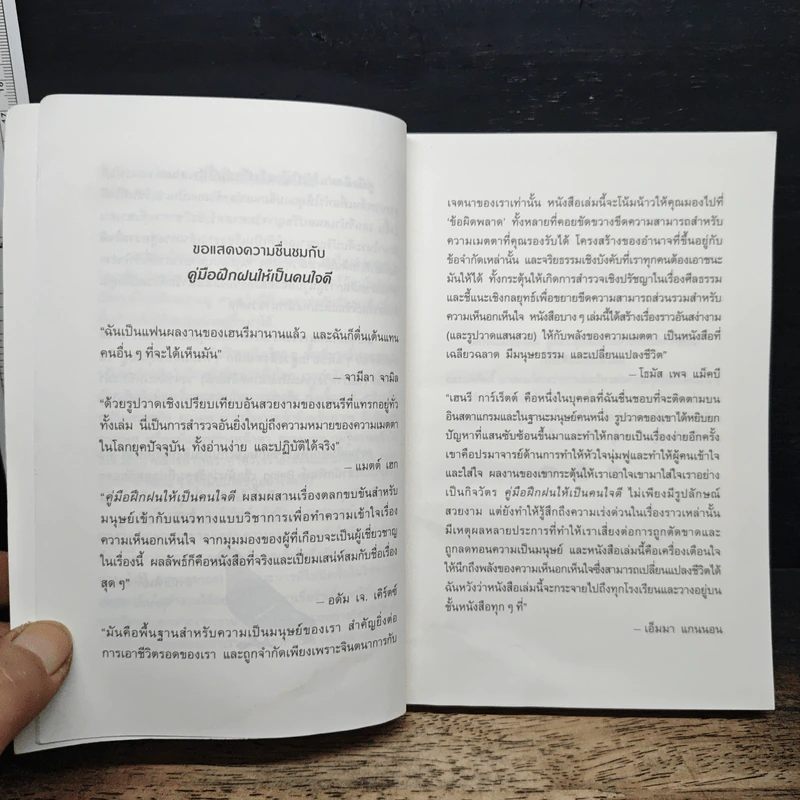 ขอแสดงความชื่นชมกับ
คู่มือฝึกฝนให้เป็นคนใจดี
“ฉันเป็นแฟนผลงานของเฮนรีมานานแล้ว และฉันก็ตื่นเต้นแทน
คนอื่น ๆ ที่จะได้เห็นมัน”
— จามีลา จามิล
“ด้วยรูปวาดเชิงเปรียบเทียบอันสวยงามของเฮนรีที่แทรกอยู่ทั่ว
ทั้งเล่ม นี่เป็นการสำรวจอันยิ่งใหญ่ถึงความหมายของความเมตตา
ในโลกยุคปัจจุบัน ทั้งอ่านง่าย และปฏิบัติได้จริง”
— แมตต์ เฮก
“คู่มือฝึกฝนให้เป็นคนใจดี ผสมผสานเรื่องตลกขบขันสำหรับ
มนุษย์เข้ากับแนวทางแบบวิชาการเพื่อทำความเข้าใจเรื่อง
ความเห็นอกเห็นใจ จากมุมมองของผู้ที่เกือบจะเป็นผู้เชี่ยวชาญ
ในเรื่องนี้ ผลลัพธ์ก็คือหนังสือที่จริงและเปี่ยมเสน่ห์สมกับชื่อเรื่อง
สุด ๆ”
— อดัม เจ. เคิร์ตซ์
“มันคือพื้นฐานสำหรับความเป็นมนุษย์ของเรา สำคัญยิ่งต่อ
การเอาชีวิตรอดของเรา และถูกจำกัดเพียงเพราะจินตนาการกับ
เจตนาของเราเท่านั้น หนังสือเล่มนี้จะโน้มน้าวให้คุณมองไปที่
‘ข้อผิดพลาด’ ทั้งหลายที่คอยขัดขวางขีดความสามารถสำหรับ
ความเมตตาที่คุณรองรับได้ โครงสร้างของอำนาจที่ขึ้นอยู่กับ
ข้อจำกัดเหล่านั้น และจริยธรรมเชิงบังคับที่เราทุกคนต้องเอาชนะ
มันให้ได้ ทั้งกระตุ้นให้เกิดการสำรวจเชิงปรัชญาในเรื่องศีลธรรม
และชี้แนะเชิงกลยุทธ์เพื่อขยายขีดความสามารถส่วนรวมสำหรับ
ความเห็นอกเห็นใจ หนังสือบาง ๆ เล่มนี้ได้สร้างเรื่องราวอันสง่างาม
(และรูปวาดแสนสวย) ให้กับพลังของความเมตตา เป็นหนังสือที่
เฉลียวฉลาด มีมนุษยธรรม และเปลี่ยนแปลงชีวิต”
— โธมัส เพจ แม็คบี
“เฮนรี การ์เร็ตต์ คือหนึ่งในบุคคลที่ฉันชื่นชอบที่จะติดตามบน
อินสตาแกรมและในฐานะมนุษย์คนหนึ่ง รูปวาดของเขาได้หยิบยก
ปัญหาที่แสนซับซ้อนขึ้นมาและทำให้กลายเป็นเรื่องง่ายอีกครั้ง
เขาคือปรมาจารย์ด้านการทำให้หัวใจนุ่มฟูและทำให้ผู้คนเข้าใจ
และใส่ใจ ผลงานของเขากระตุ้นให้เราเอาใจเขามาใส่ใจเราอย่าง
เป็นกิจวัตร คู่มือฝึกฝนให้เป็นคนใจดี ไม่เพียงมีรูปลักษณ์
สวยงาม แต่ยังทำให้รู้สึกถึงความเร่งด่วนในเรื่องราวเหล่านั้น
มีเหตุผลหลายประการที่ทำให้เราเสี่ยงต่อการถูกตัดขาดและ
ถูกลดทอนความเป็นมนุษย์ และหนังสือเล่มนี้คือเครื่องเตือนใจ
ให้นึกถึงพลังของความเห็นอกเห็นใจซึ่งสามารถเปลี่ยนแปลงชีวิตได้
ฉันหวังว่าหนังสือเล่มนี้จะกระจายไปถึงทุกโรงเรียนและวางอยู่บน
ชั้นหนังสือทุก ๆ ที่”
— เอ็มมา แกนนอน